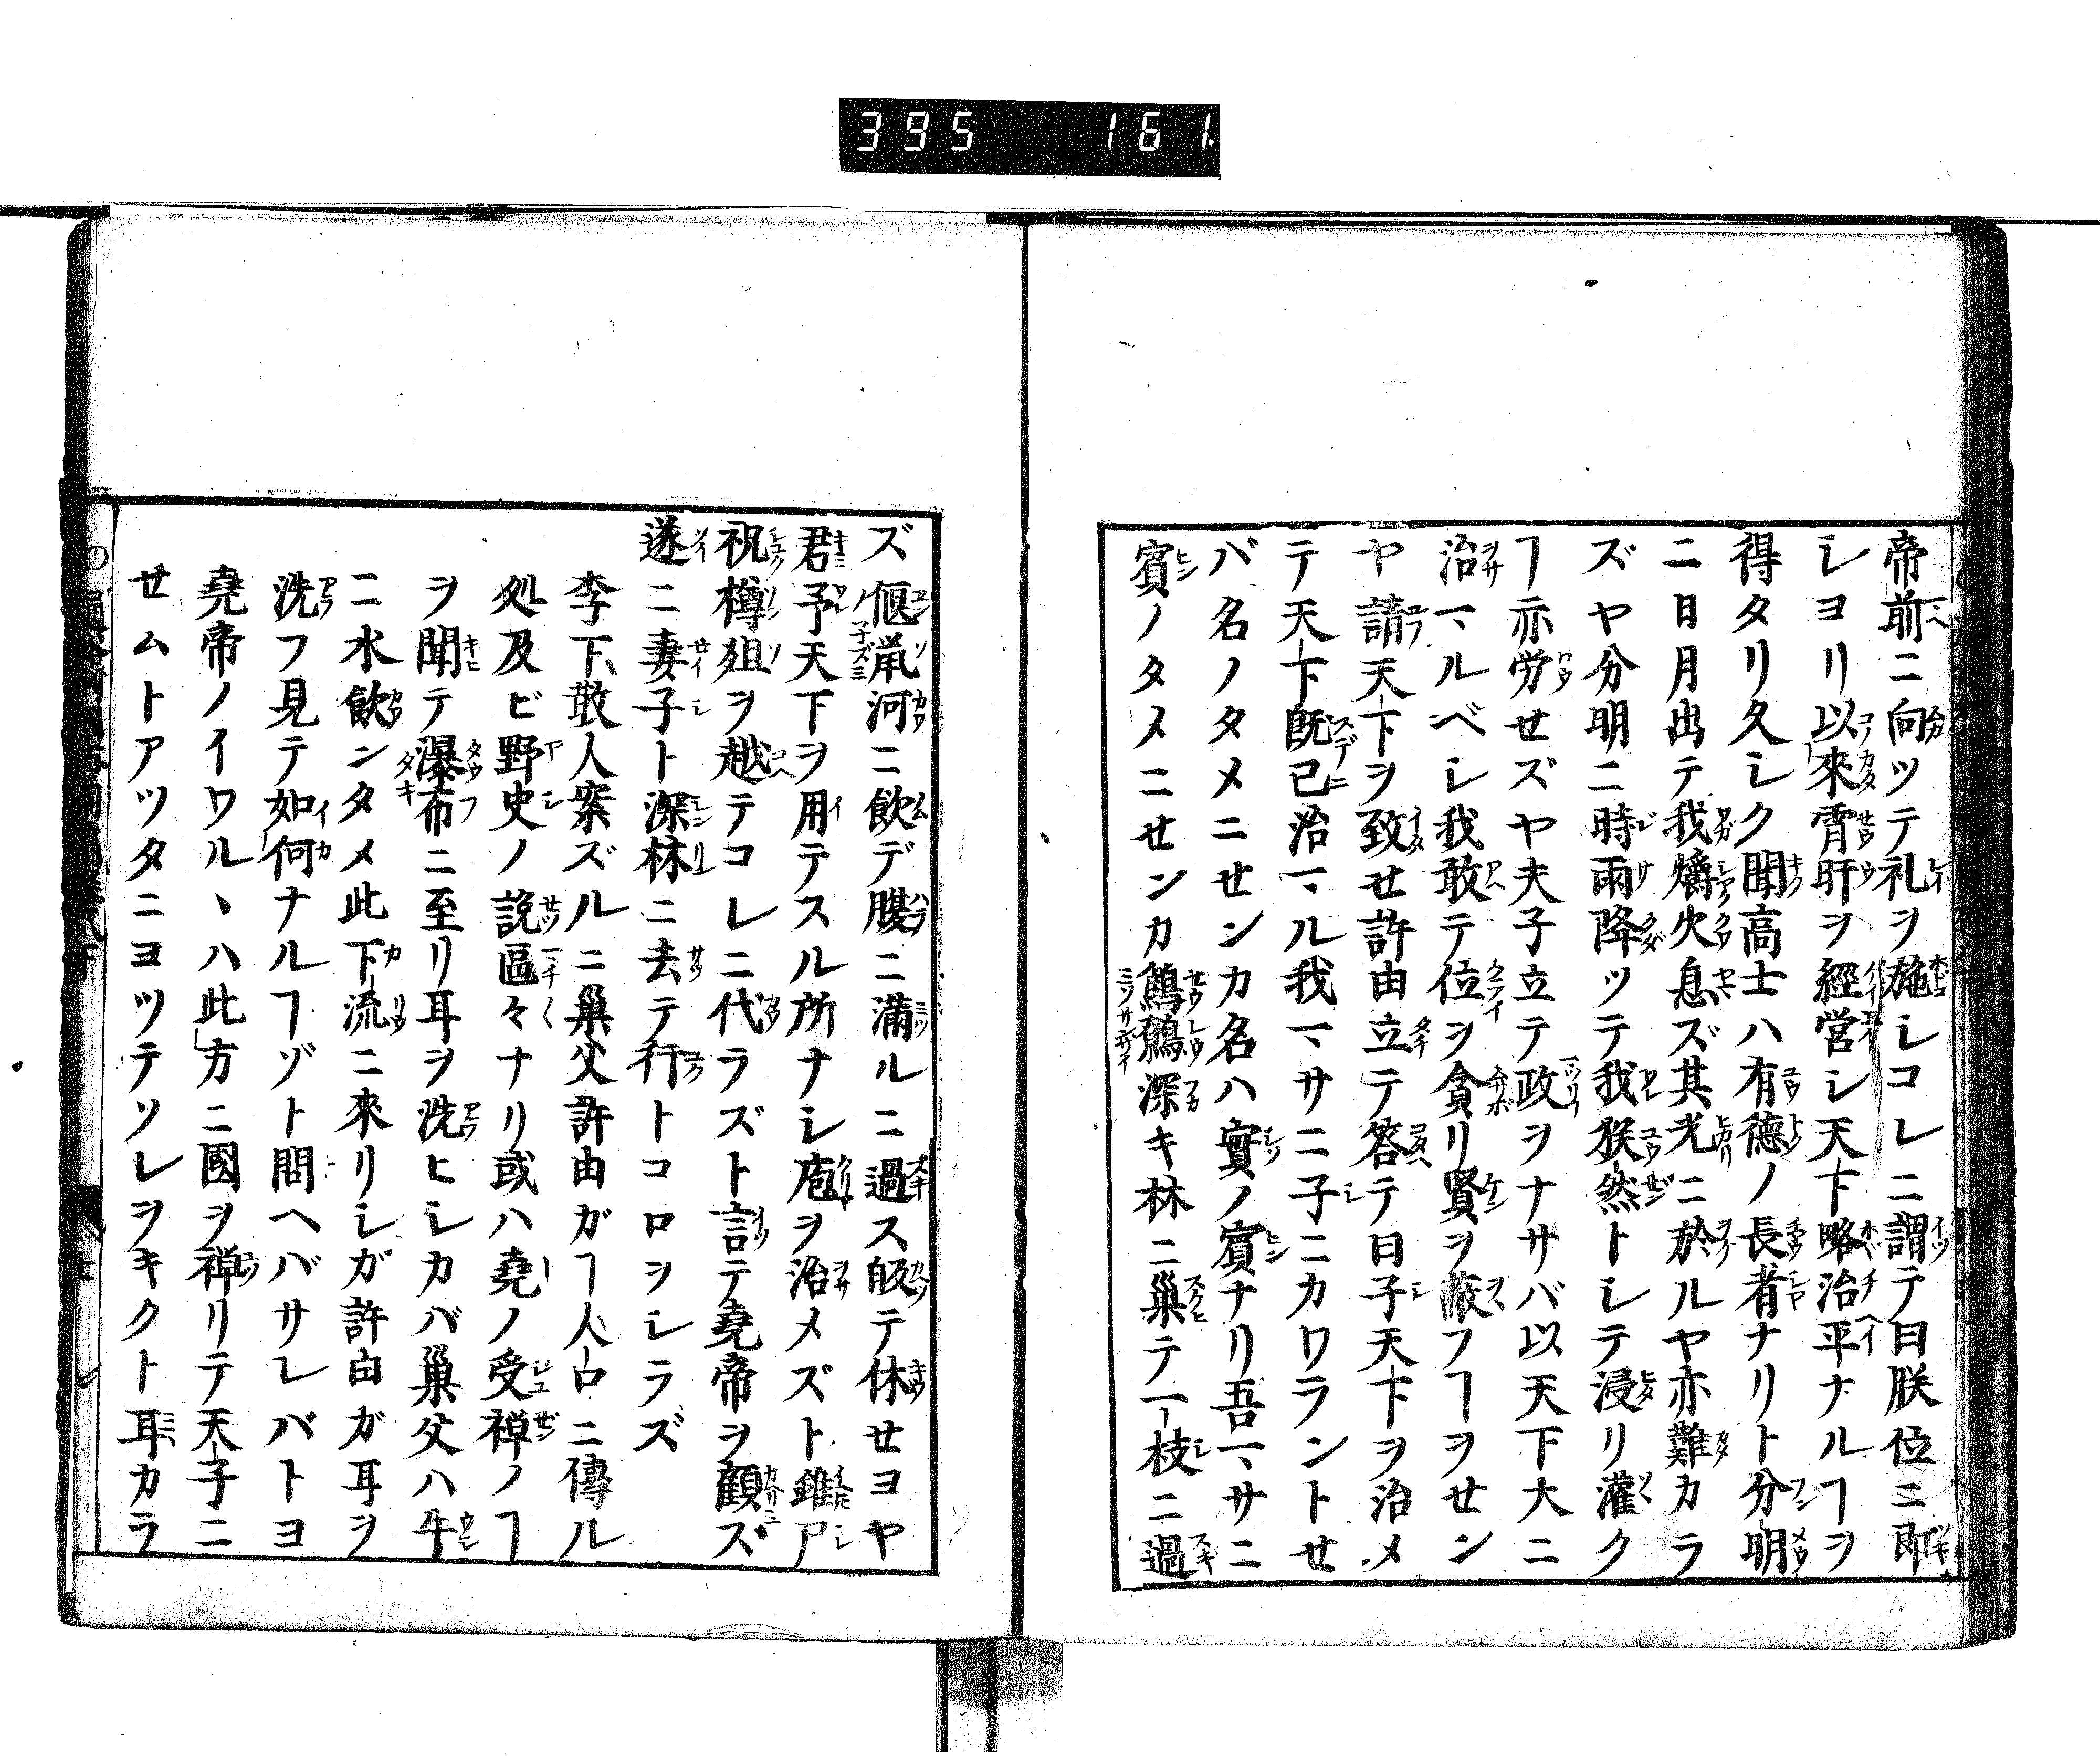 395 161
帝前ニ向ツテ礼ヲ施シコレニ謂テ曰朕位ニ即
シヨリ以來霄旰ヲ經営シ天下略治平ナルヿヲ
得タリ久シク聞高士ハ有德ノ長者ナリト分明
ニ日月出テ我爝火息ズ其光ニ於ルヤ亦難カラ
ズヤ分明ニ時雨降ツテ我猴然トシテ浸リ灌ク
ヿ亦労せズヤ夫子立テ政ヲナサバ以天下大ニ
治マルベシ我敢テ位ヲ貪リ賢ヲ蔽フヿヲせン
ヤ請天下ヲ致せ許由立テ答テ曰子天下ヲ治メ
テ天下既已治マル我マサニ子ニカワラントせ
バ名ノタメニせンカ名ハ實ノ賓ナリ吾マサニ
賓ノタメニせンカ鷦鷯深キ林ニ巢テ一枝ニ過
ズ偃鼡河ニ飲デ腹ニ満ルニ過ス皈テ休せヨヤ
君予天下ヲ用テスル所ナシ庖ヲ治メズト雖尸
祝樽俎ヲ越テコレニ代ラズト言テ堯帝ヲ顧ズ
遂ニ妻子ト深林ニ去テ行トコロヲシラズ
李下散人案ズルニ巢父許由ガヿ人口ニ傳ル
処及ビ野史ノ説區々ナリ或ハ堯ノ受禅ノヿ
ヲ聞テ瀑布ニ至リ耳ヲ洗ヒシカバ巢父ハ牛
ニ水飲ンタメ此下流ニ來リシガ許由ガ耳ヲ
洗フ見テ如何ナルヿゾト問ヘバサレバトヨ
堯帝ノイワルヽハ此方ニ國ヲ禅リテ天子ニ
せムトアツタニヨツテソレヲキクト耳カラ